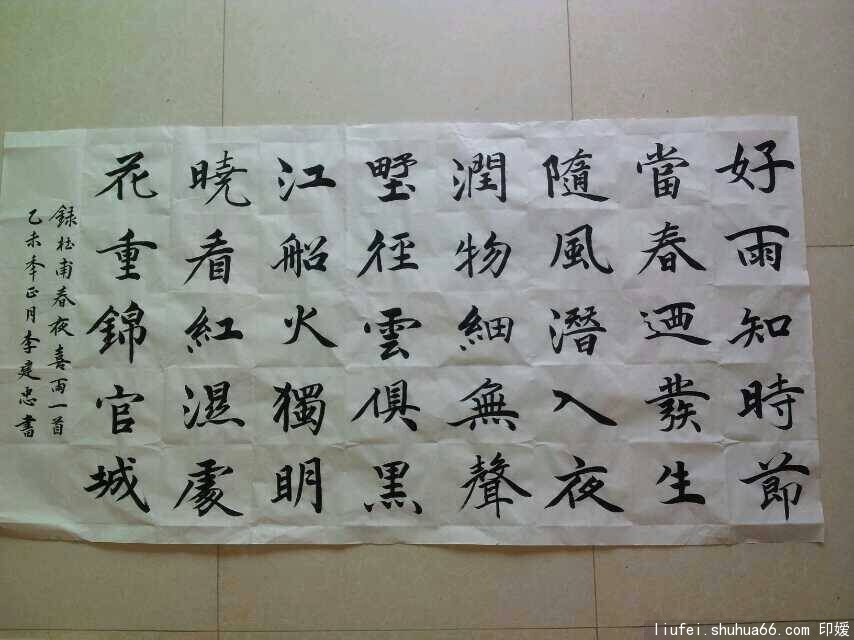 好雨知時節
當春迺發生
隨風潛入夜
潤物細無聲
野徑雲俱黑
江船火獨明
曉看紅濕處
花重錦官城
録杜甫春夜喜雨一首
乙未年正月李建忠書
liufei.shuhua66.com 印媛